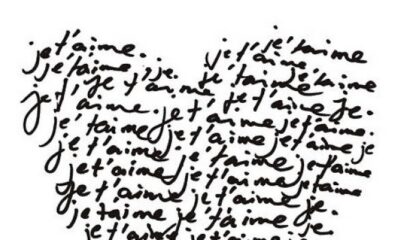 je t'aime. je t'aime
je t'aime, je. je t'aime
je t'aime je t'aime je t'aime
je t'aime. je t'aime je.
je t'aime je t'aime je t'aime.
je t'aime je t'aime je
je t'aime je t'aime je t'aime
je t'aime je t'aime je.
je t'aime je t'aime je
je t'aime je t'aime